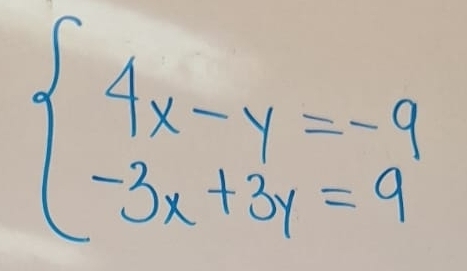 4x - y = -9
-3x + 3y = 9